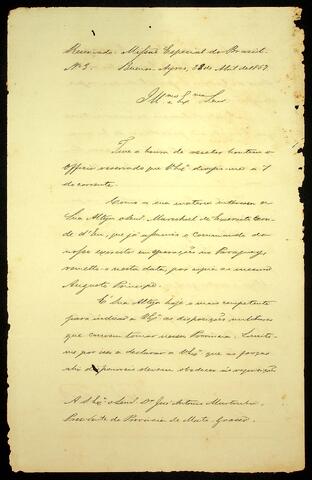 Reservado. Missão Especial do Brasil.
Nº 3. Buenos Ayres, 28 de Abril de 1869.
Illmo e Exmo Senr
Tive a honra de receber hontem o
officio reservado que V. Exª dirigio-me a 7
do corrente.
Como a sua materia interessa a
Sua Alteza o Senr Marechal de Exercito Conde
d'Eu, que já assumio o Commando do
nosso exercito em operações no Paraguay,
remetto-o nesta data, por copia ao mesmo
Augusto Principe.
É Sua Alteza hoje o mais competente
para indicar a V. Exª as disposições militares
que convem tomar nessa Provincia. Limito-
me por isso a declarar a V. Exª que as forças
ahi disponiveis devem obedecer ás requisições
A S. Exª o Senr Dr José Antonio Murtinho
Presidente da Provincia de Mato Grosso.